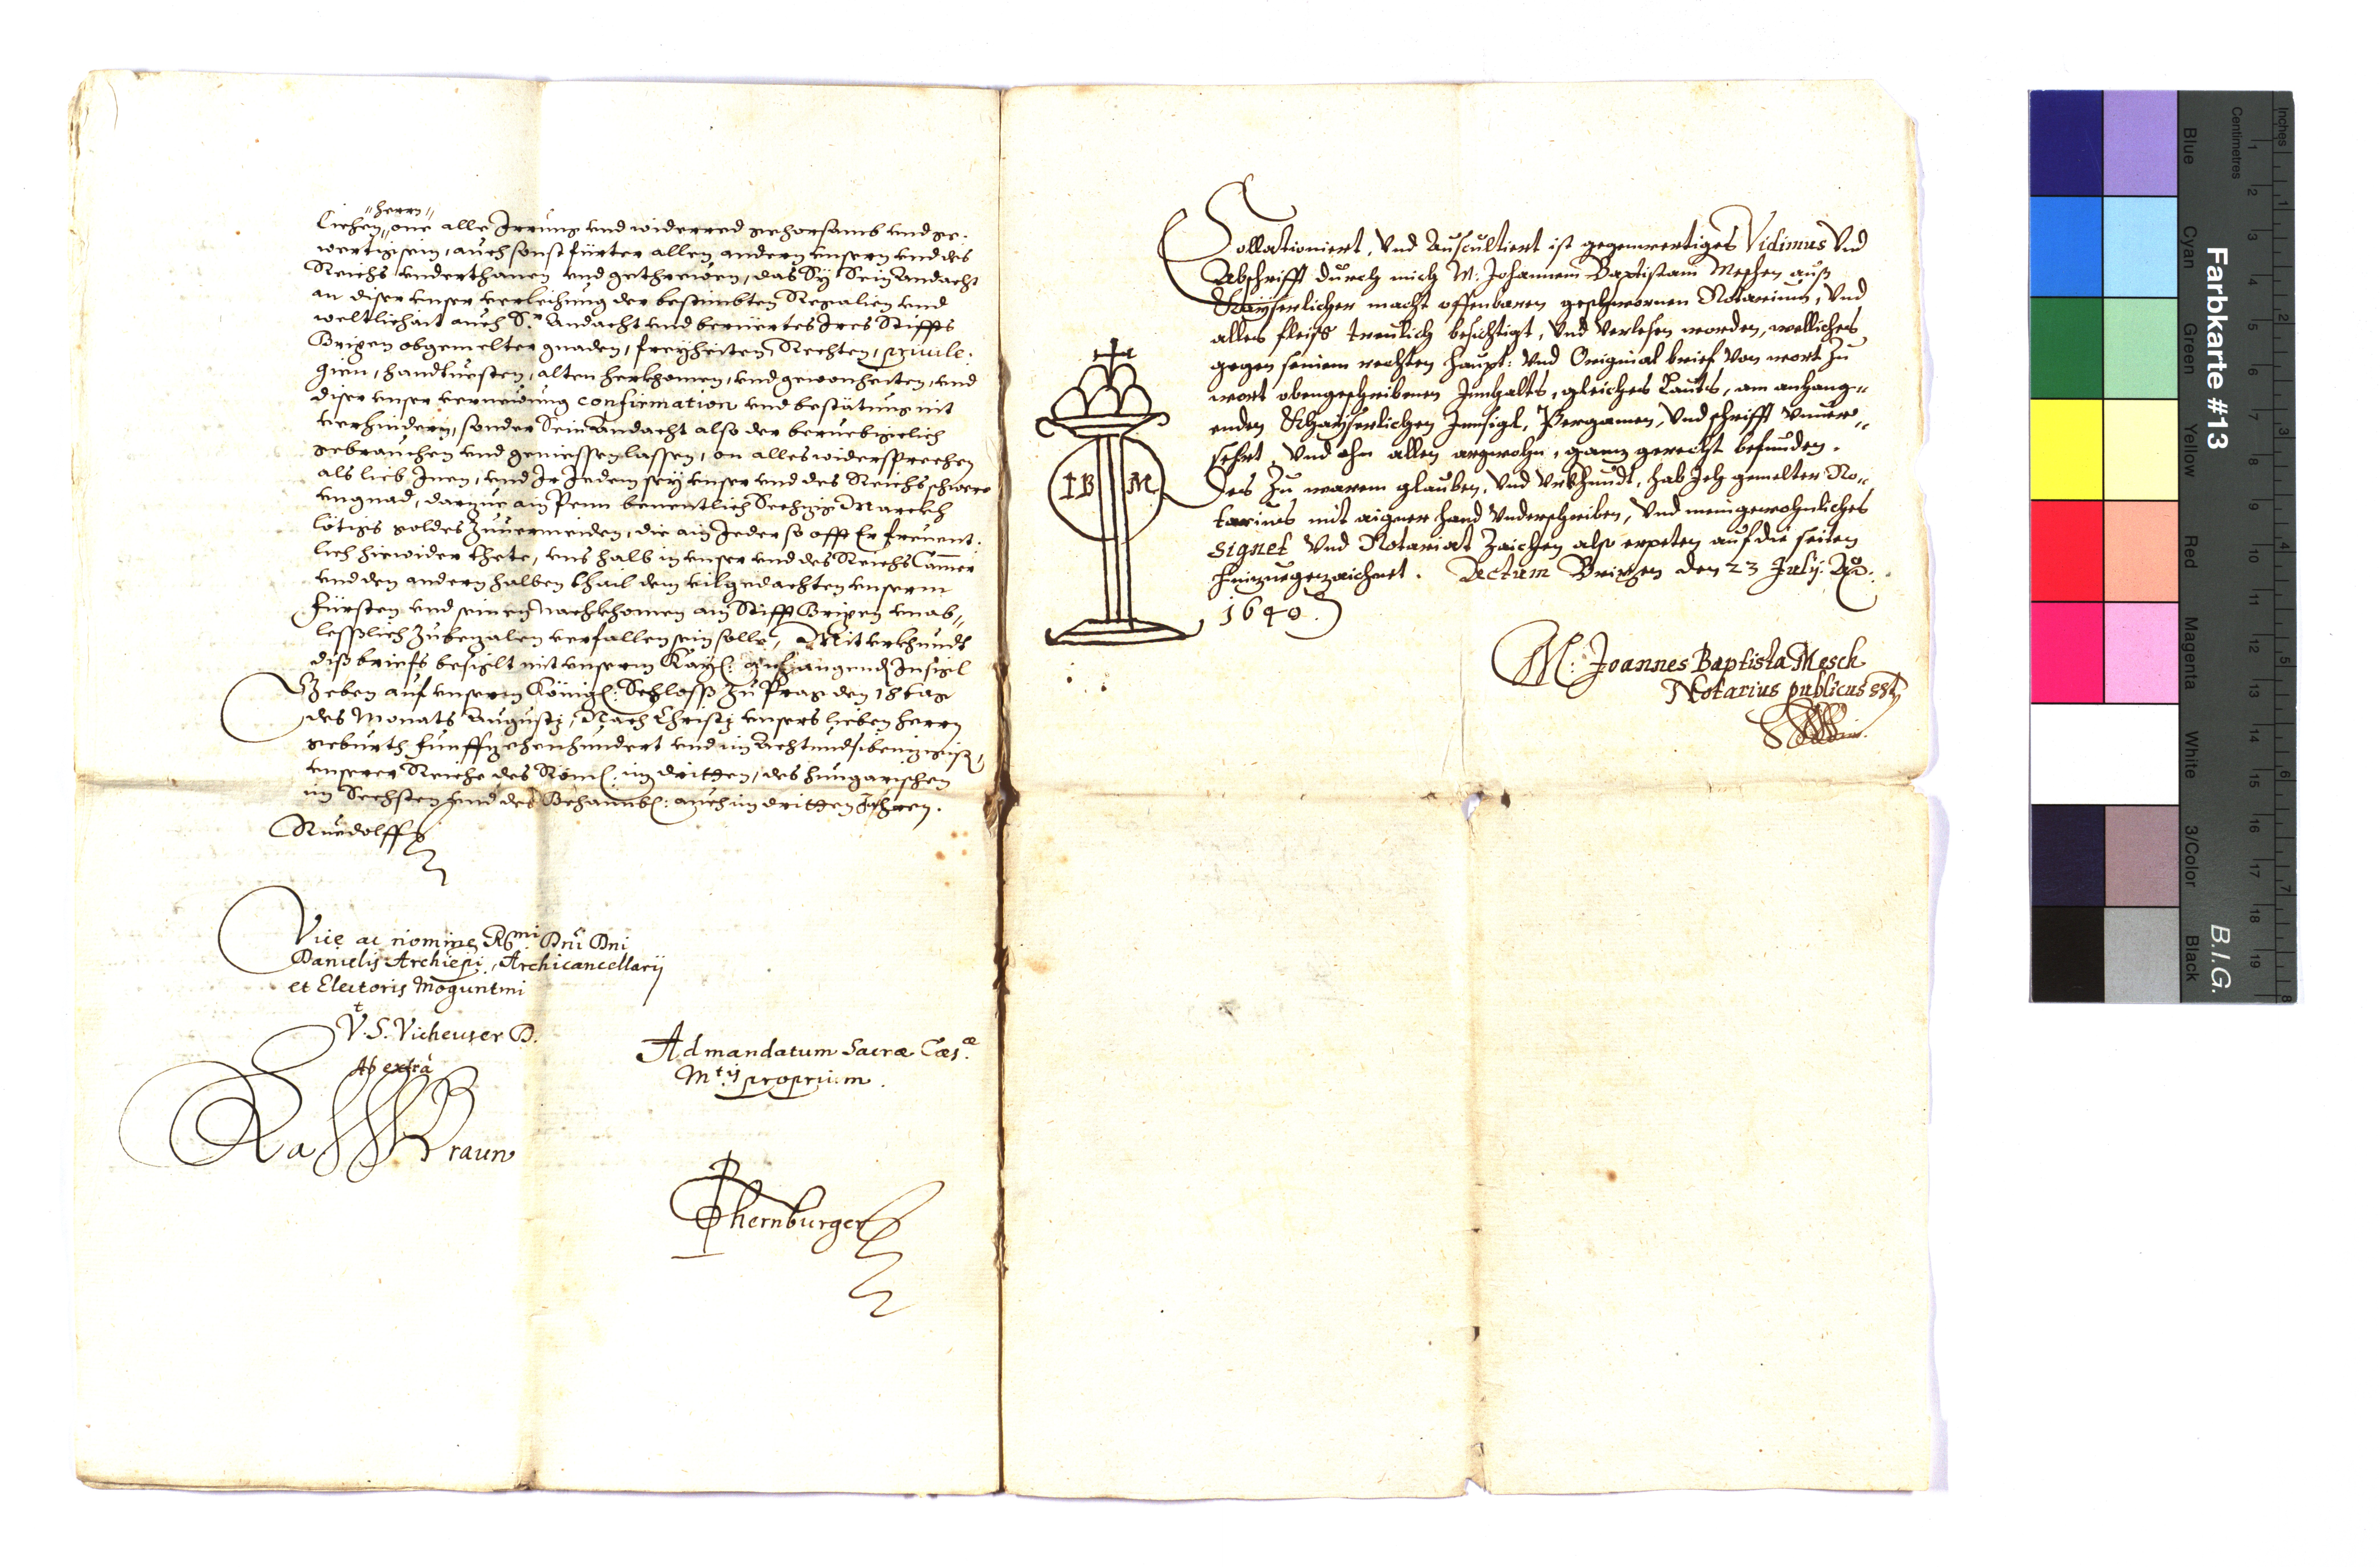 "herrn"
Liehen, one alle Irrung und widerred gehorsamb und ge-
wertig sein, auch sonst fürter allen andern unsern und des
Reichs underthanen und gethreuen, das Sy Sein Andacht
an diser unser verleihung der bestimbten Regalien und
weltlichait auch Sr Andacht und berüertes Ires Stiffts
Brixen obgemelter gnaden, freyheiten, Rechten, priuile-
gien, handtuesten, alten herkhomen, und gewonheiten, und
diser unser verneuung confirmation und bestätung nit
verhindern, sonder Sein Andacht also der beruebigclich
gebrauchen und geniessen lassen, on alles widersprechen
als lieb Inen, und Ir Iedem sey unser und des Reichs schwere
ungnad, darzue ain Penn benentlich Sechzig Marckh
lötigs goldes zuuermeiden, die ain Ieder so offt Er freuent-
lich hiewider thete, uns halb in unser und des Reichs Camer
und den andern halben thail dem vilgedachten unserm
fürsten und seinen nachkhomen am Stifft Brixen unab"
lesslich zubezalen verfallen sein solle, Mit urkhundt
diß briefs besiglt mit unserm Kay: anhangendn Insigl
Geben auf unserm Königl: Schloss zu Prag den 18 tag
des Monats Augusty, Nach Christy unsers lieben herrn
geburth funffzehenhundert und im Achtundsibenzigist,
unserer Reiche des Röm: im dritten, des hungarischen
im Sechsten und des Behaimb: auch im dritten Jahren.
Ruedolff
Vice ac nomine Rmi Dni Dni
Danielis Archiepi, Archicancellarij
et Electoris Moguntini
Vt S. Vieheuser D.
Ab extra
Ra Braun
Ad mandatum Sacræ Cæs.æ
Mtis proprium.
P Obernburger
Collationiert, Vnd Auscultiert ist gegenwertiges Vidimus Vnd
Abschrifft durch mich M. Johannem Baptistam Meschen auß
Khayserlicher macht offenbaren geschwornen Notarium, Vnd
alles fleiss treulich besichtigt, Vnd verlesen worden, welliches
gegen seinem rechten haupt: Vnd Original brief Von wort zu
wort obengeschribenen Innhalts, gleiches Lauts, am anhang"
enden Khayserlichen Innsigl, Pergamen, Vnd schrifft Vnuer"
sehrt, Vnd ohn allen argwohn, ganz gerecht befunden.
Des zu warem glauben, Vnd Vrkhundt, hab Ich gemelter No"
tarius mit aigner hand Vnderschriben, Vnd mein gewohnliches
Signet Vnd Notariat Zaichen also erpeten auf die seiten
hinzuegezaichnet. Actum Brixen den 23 July. Ao.
1640.
I B M
M: Joannes Baptista Mesch
Notarius publicus